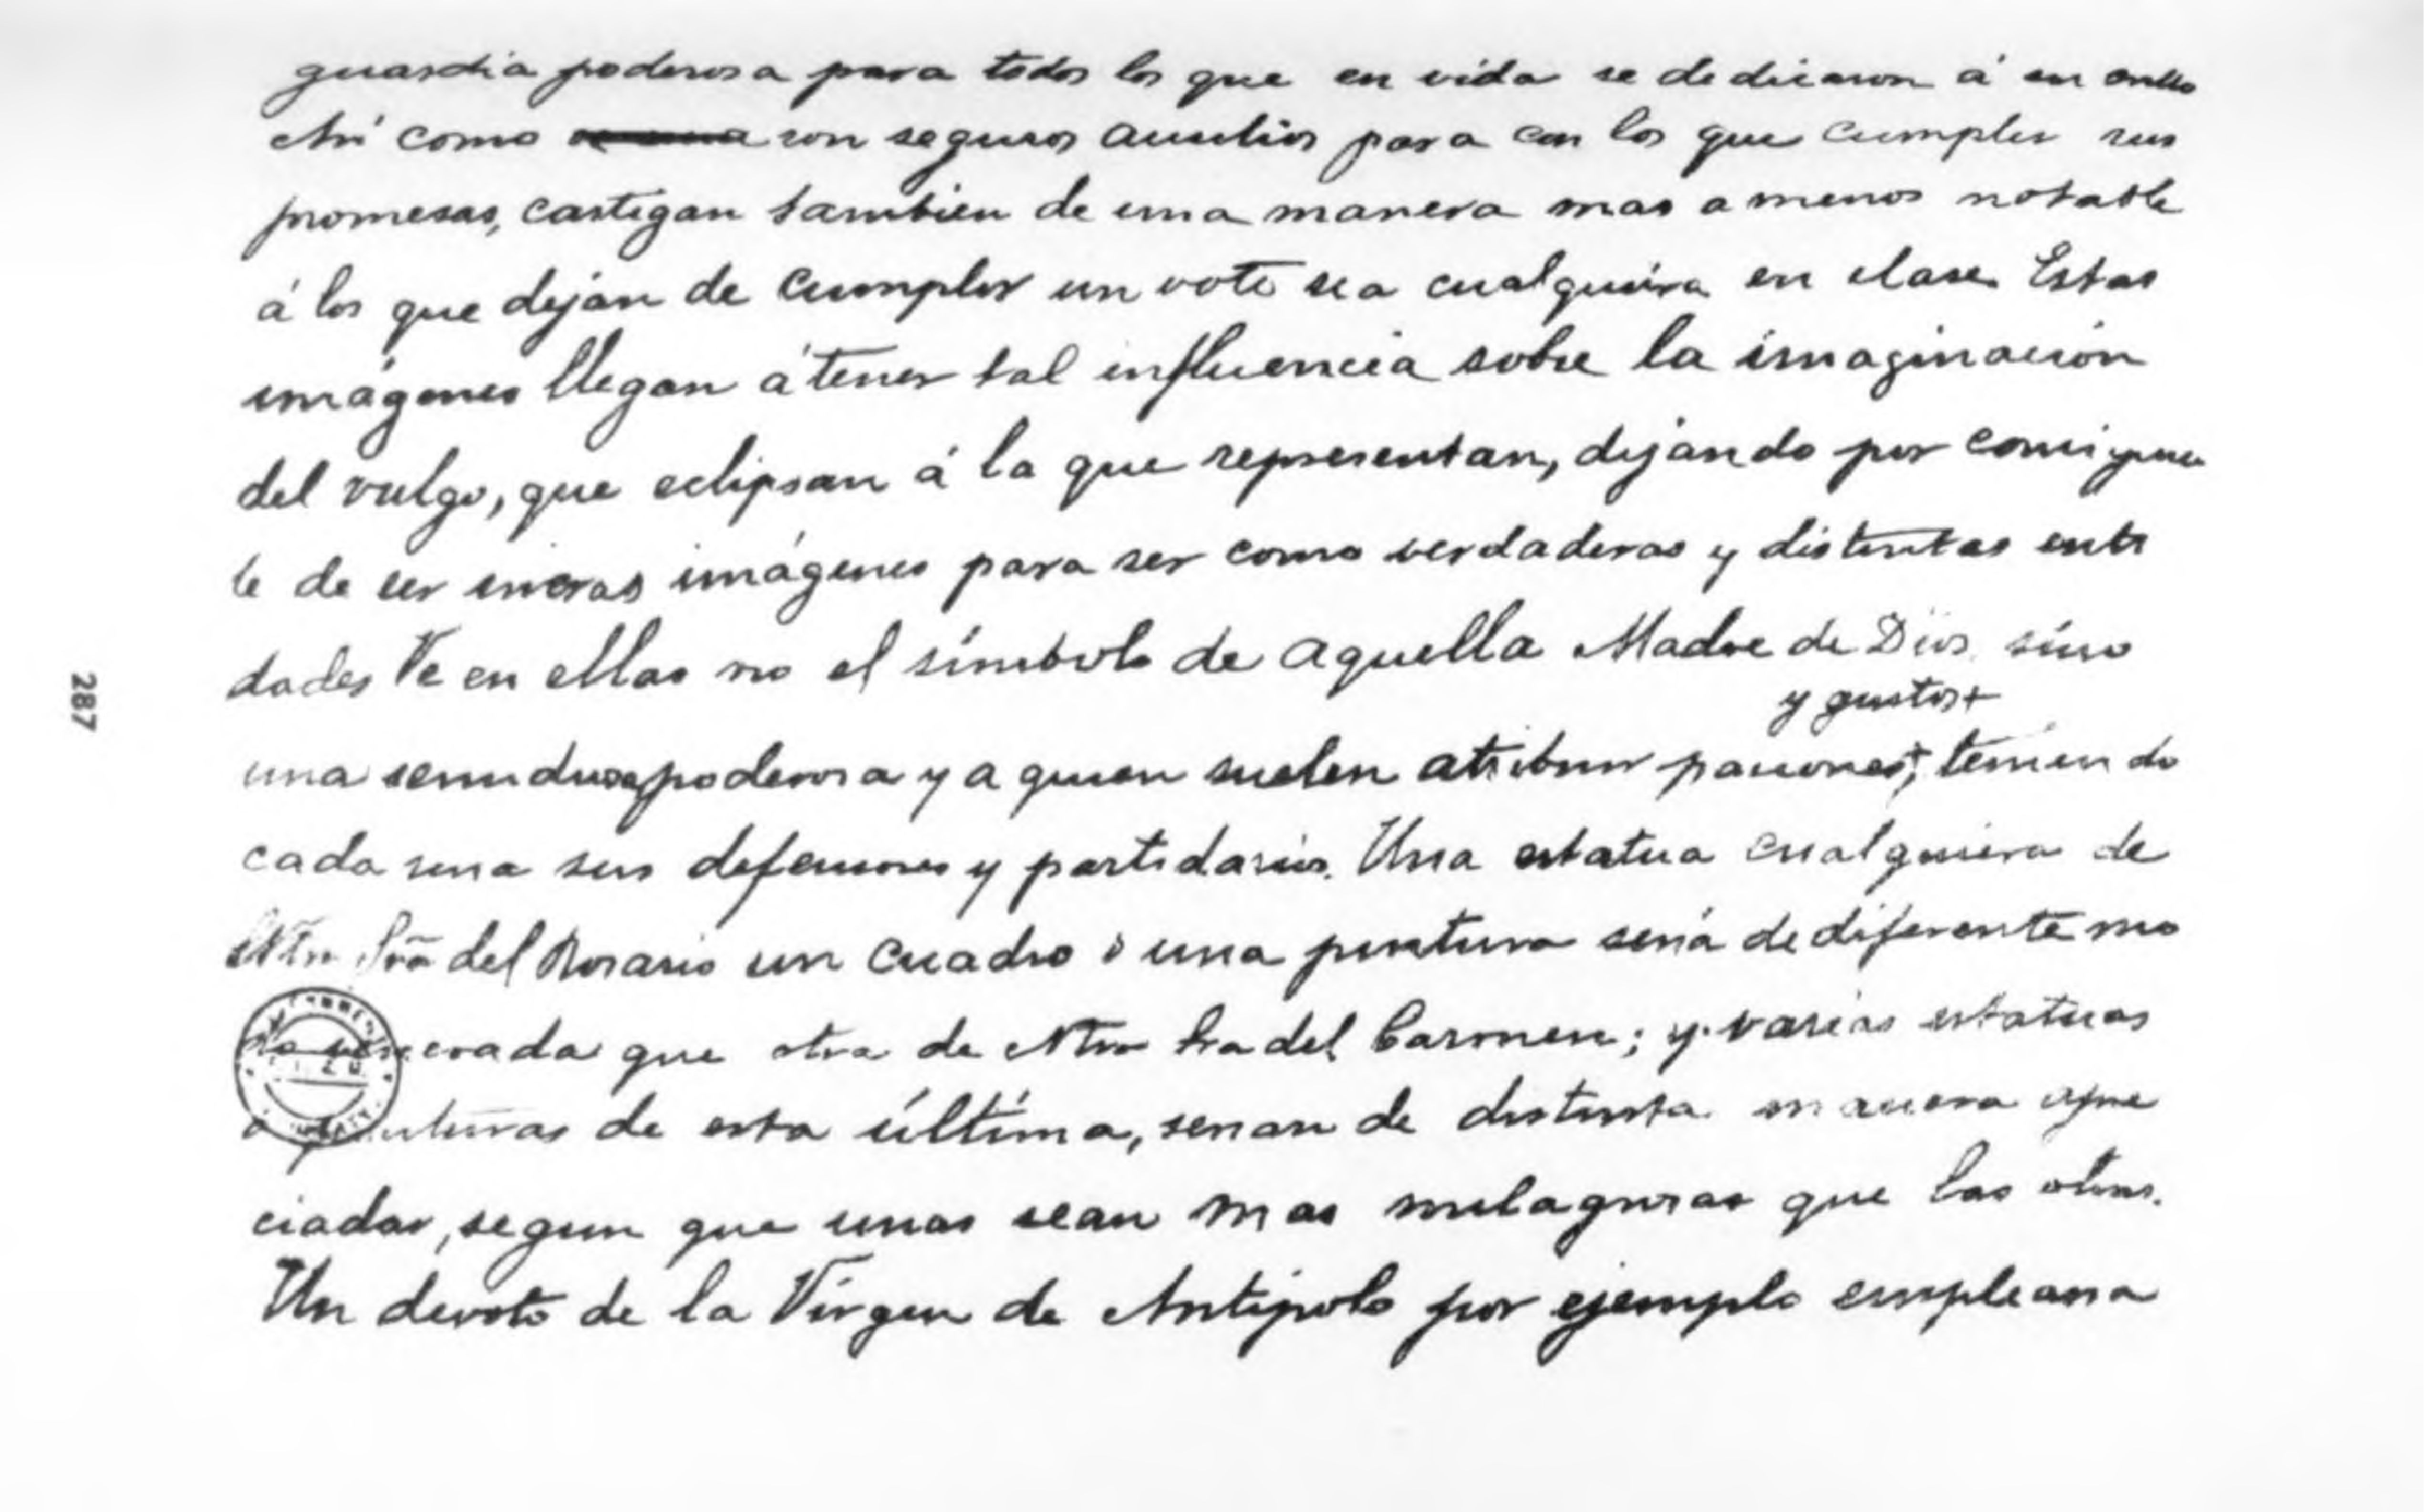 guardia poderosa para todos los que en vida se dedicaron á su culto
Así como son seguros ausilios para con los que cumplen sus
promesas, castigan tambien de una manera mas o menos notable
á los que dejan de cumplir un voto sea cualquiera su clase. Estas
imágenes llegan á tener tal influencia sobre la imaginacion
del vulgo, que eclipsan á la que representan, dejando por consiguien
te de ser meras imágenes para ser como verdaderas y distintas enti
dades Ve en ellas no el símbolo de aquella Madre de Dios sino
y gustos+
una semidiosa poderosa y a quien suelen atribuir pasiones+, teniendo
cada una sus defensores y partidarios. Una estatua cualquiera de
Ntra Sra del Rosario un cuadro o una pintura será de diferente mo
do venerada que otra de Ntra Sra del Carmen; y varias estatuas
o pinturas de esta última, seran de distinta manera apre
ciadas, segun que unas sean mas milagrosas que las otras.
Un devoto de la Vírgen de Antipolo por ejemplo empleara
287